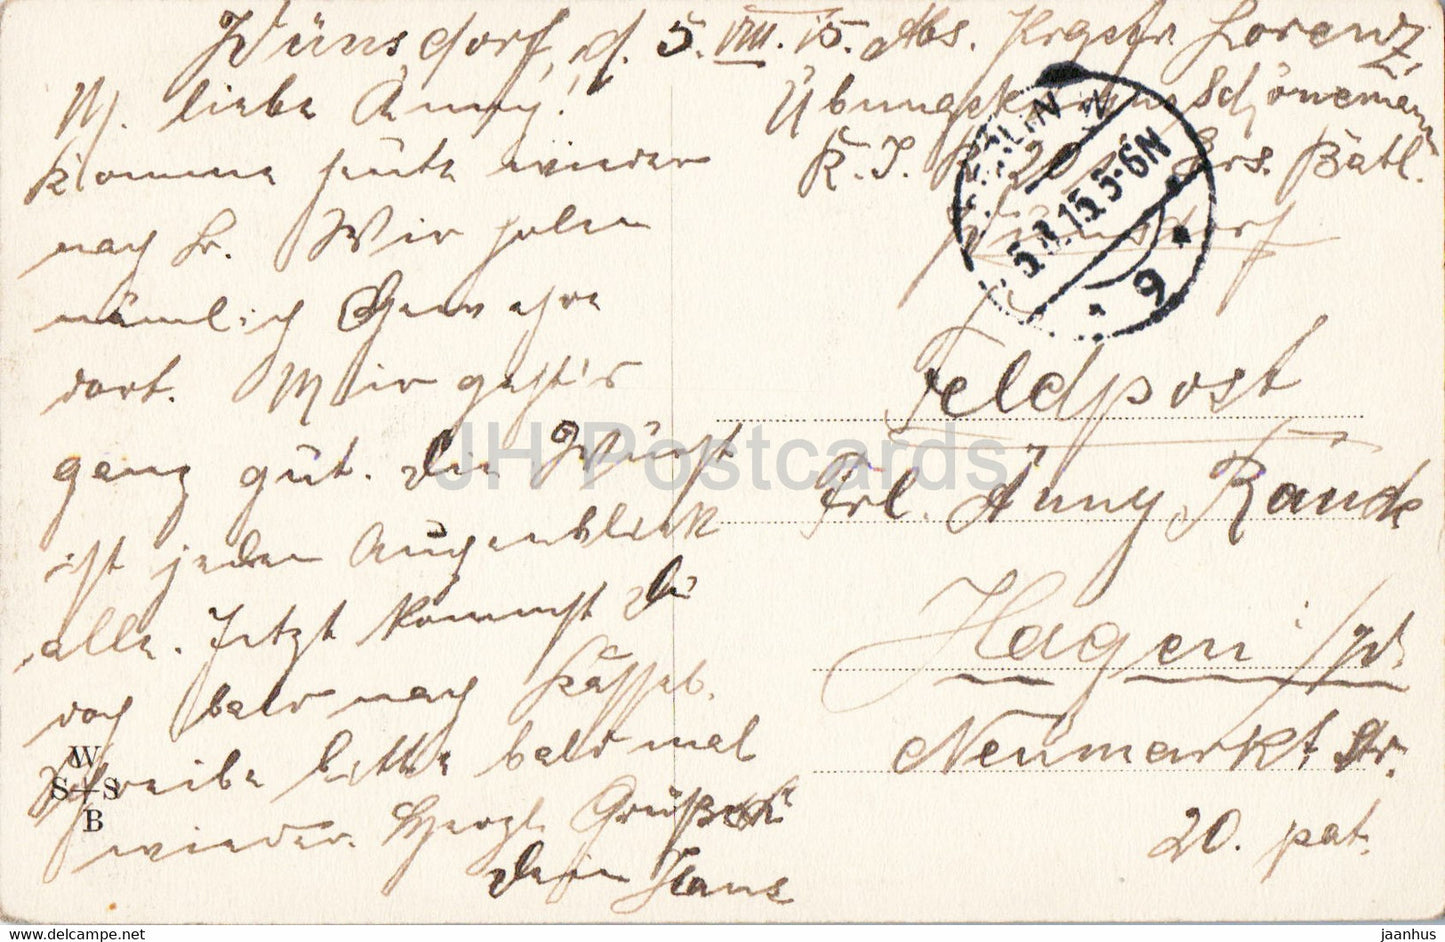 Wünsdorf, d. 5. VIII. 15. Abs. Krgsfr. Lorenz,
M. liebe Anny!
komme heute wieder
nach Hr. Wir holen
nämlich Gewehre
dort. Mir geht's
ganz gut. Die Wurst
ist jeden Augenblick
alle. Jetzt kommst Du
doch bald nach
Schreibe bitte bald mal
wieder. Herzl. Grüße
Dein Hans
Übungskurs Schönemann
K. J. R. 20 Ers. Batl.
Wünsdorf
BERLIN W
5.8.15.5-6N
* 9 *
Feldpost
Frl. Anny Raude
Hagen i/W.
Neumarkt Str.
20. pat.
W
S+S
B
JH Postcards
www.delcampe.net
jaanhus